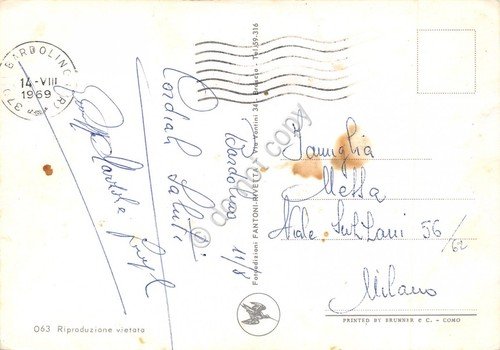 BARDOLINO (VR)
14-VIII
1969
Cordiali Saluti
Bardolino 11/8
Fotoedizioni FANTONI-RIVETTA - Via Vantini 34 - Brescia - Tel. 59.316
Famiglia
Messa
Viale
56/62
Milano
063 Riproduzione vietata
PRINTED BY BRUNNER & C. - COMO